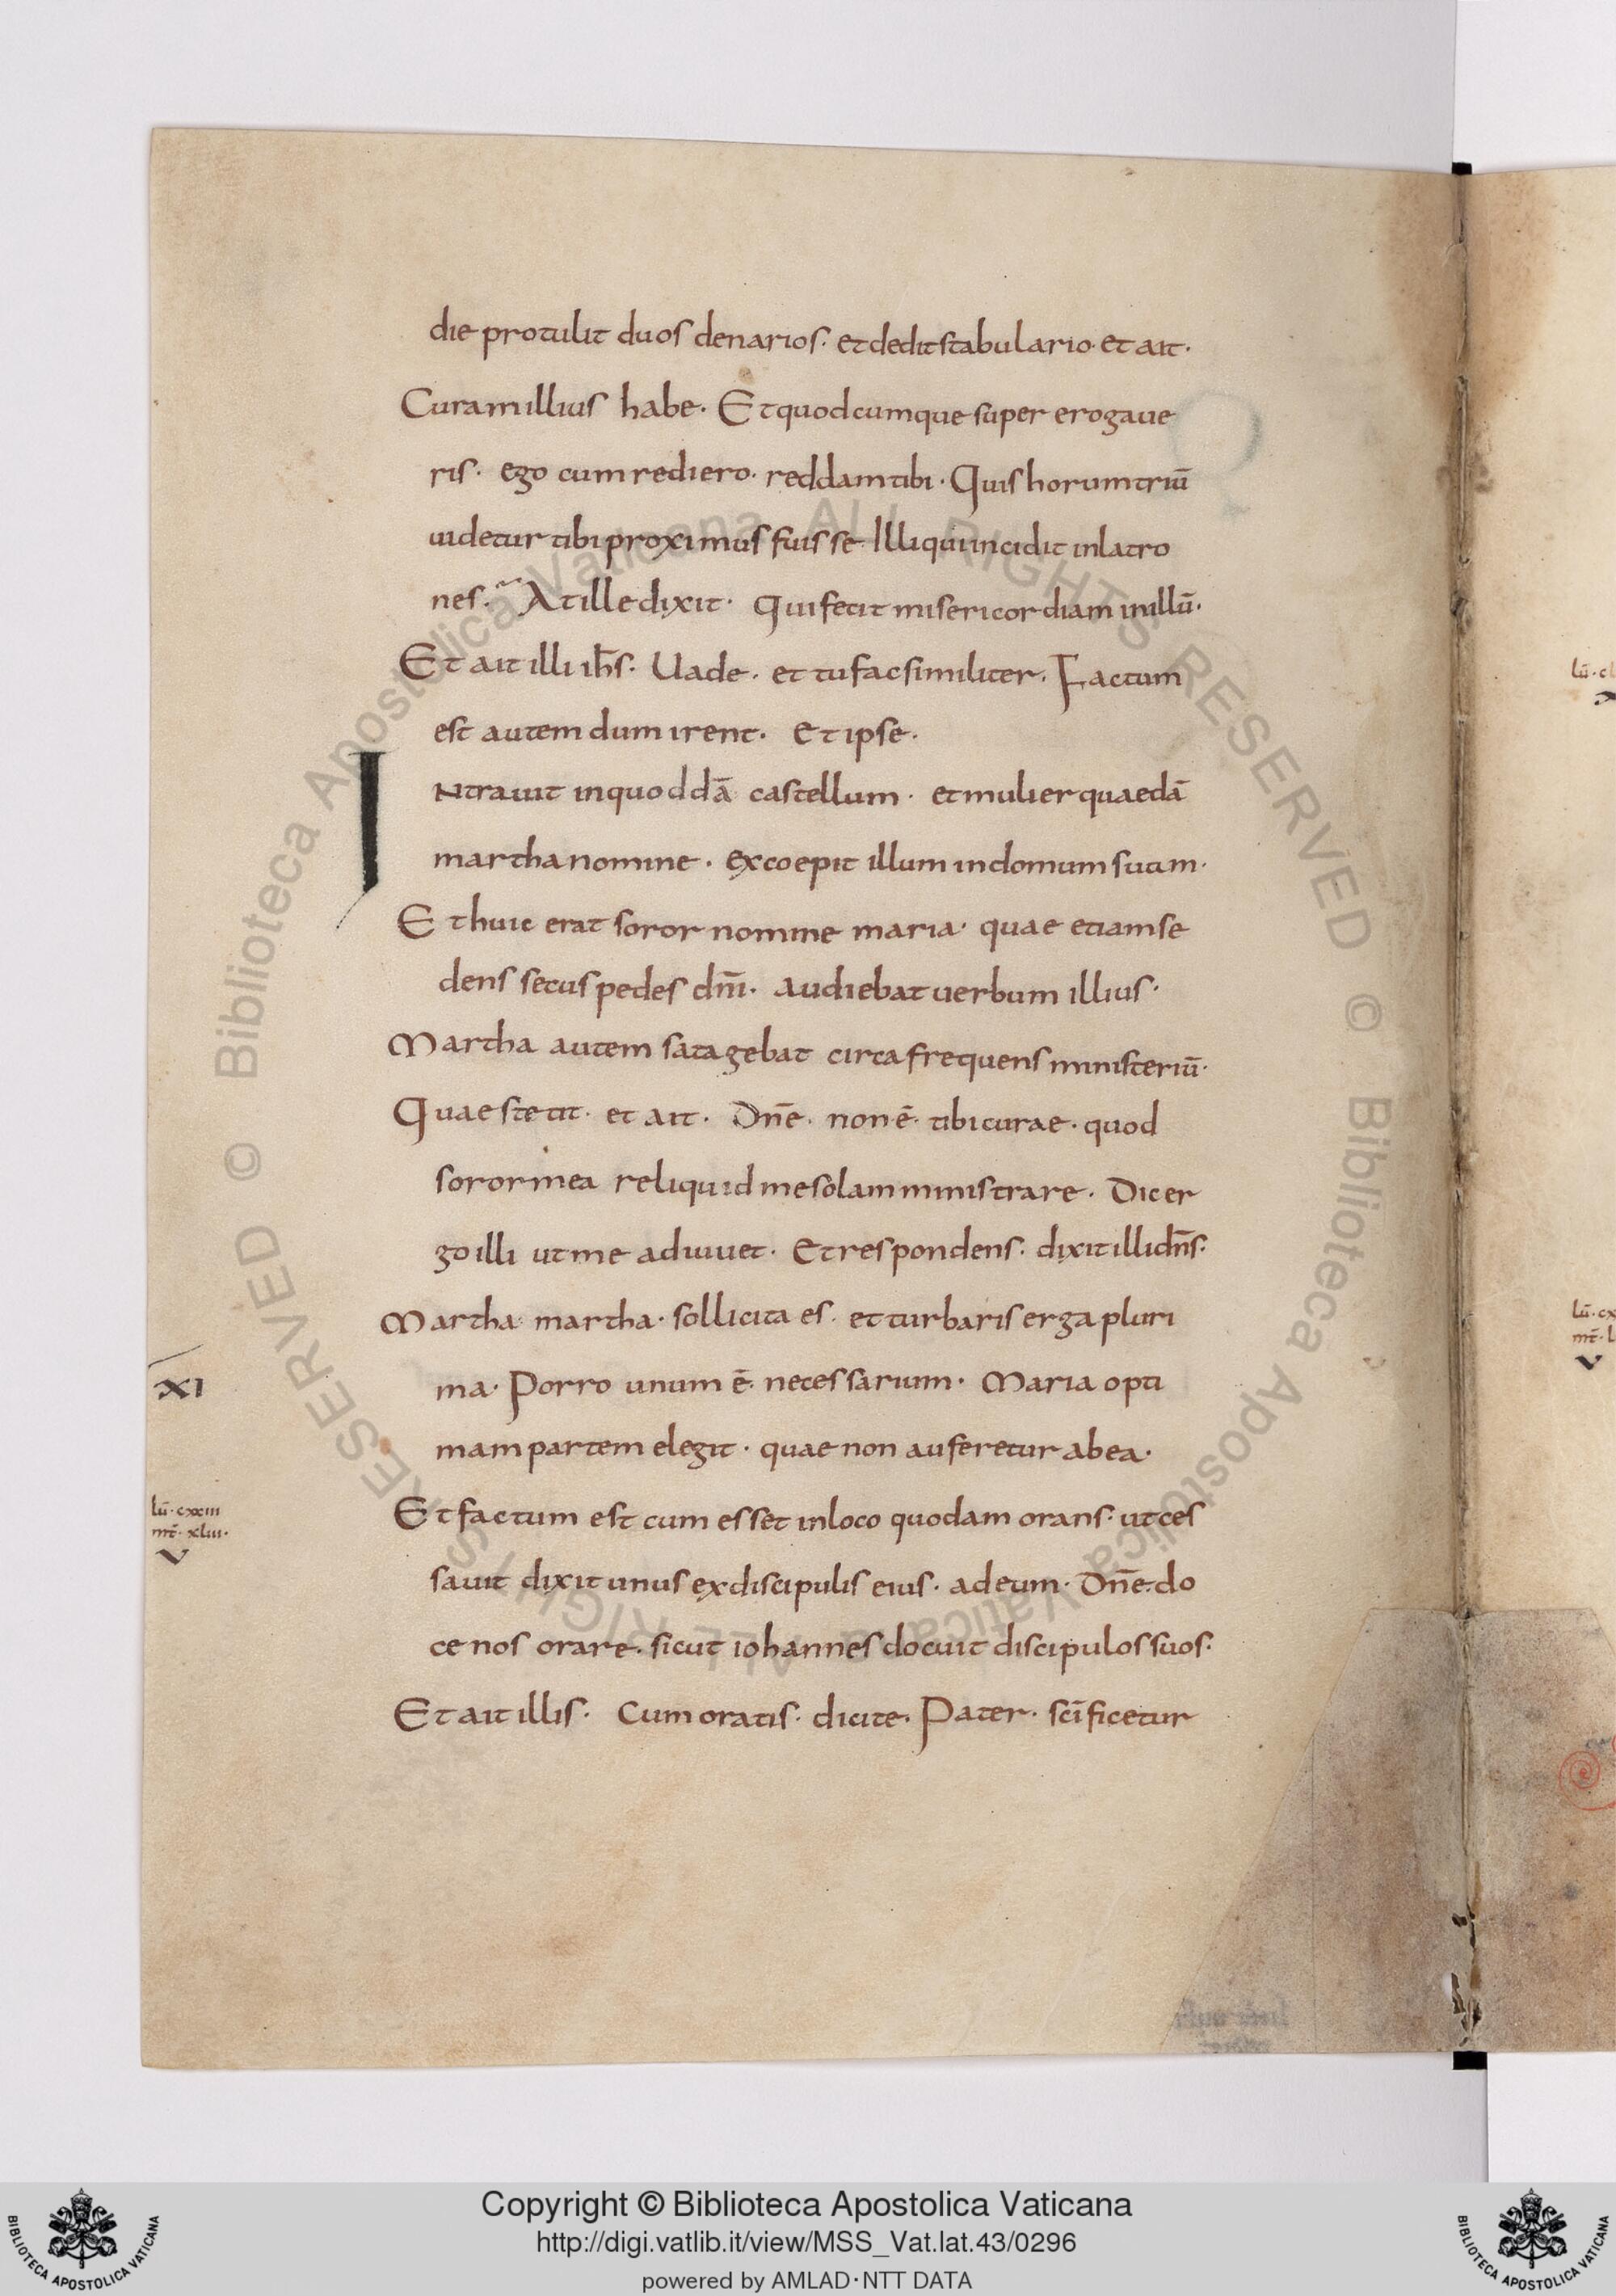 die protulit duos denarios· et dedit stabulario· et ait·
Curam illius habe· Et quodcumque super erogaue
ris· ego cum rediero· reddam tibi· Quis horum triū
uidetur tibi proximus fuisse Illi qui incidit in latro
nes· At ille dixit· qui fecit misericordiam in illū·
Et ait illi ih̄s· Uade· et tu fac similiter· Factum
est autem dum irent· et ipse·
INtrauit in quoddā castellum· et mulier quaedā
martha nomine· excoepit illum in domum suam·
Et huic erat soror nomine maria· quae etiam se
dens secus pedes dn̄i· audiebat uerbum illius·
Martha autem satagebat circa frequens ministeriū·
Quae stetit· et ait· Dn̄e· non ē· tibi curae· quod
soror mea reliquid me solam ministrare· Dic er
go illi ut me adiuuet· Et respondens· dixit illi dn̄s·
Martha martha· sollicita es· et turbaris erga pluri
XI
ma· Porro unum ē· necessarium· Maria opti
mam partem elegit· quae non auferetur ab ea·
lū·cxxiii
mt̄·xliii·
V
Et factum est cum esset in loco quodam orans· ut ces
sauit dixit unus ex discipulis eius· ad eum· Dn̄e· do
ce nos orare· sicut iohannes docuit discipulos suos·
Et ait illis· Cum oratis· dicite· Pater· sc̄ificetur
© Biblioteca Apostolica Vaticana ALL RIGHTS RESERVED
© Biblioteca Apostolica Vaticana ALL RIGHTS RESERVED
BIBLIOTECA APOSTOLICA VATICANA
Copyright © Biblioteca Apostolica Vaticana
http://digi.vatlib.it/view/MSS_Vat.lat.43/0296
powered by AMLAD·NTT DATA
BIBLIOTECA APOSTOLICA VATICANA